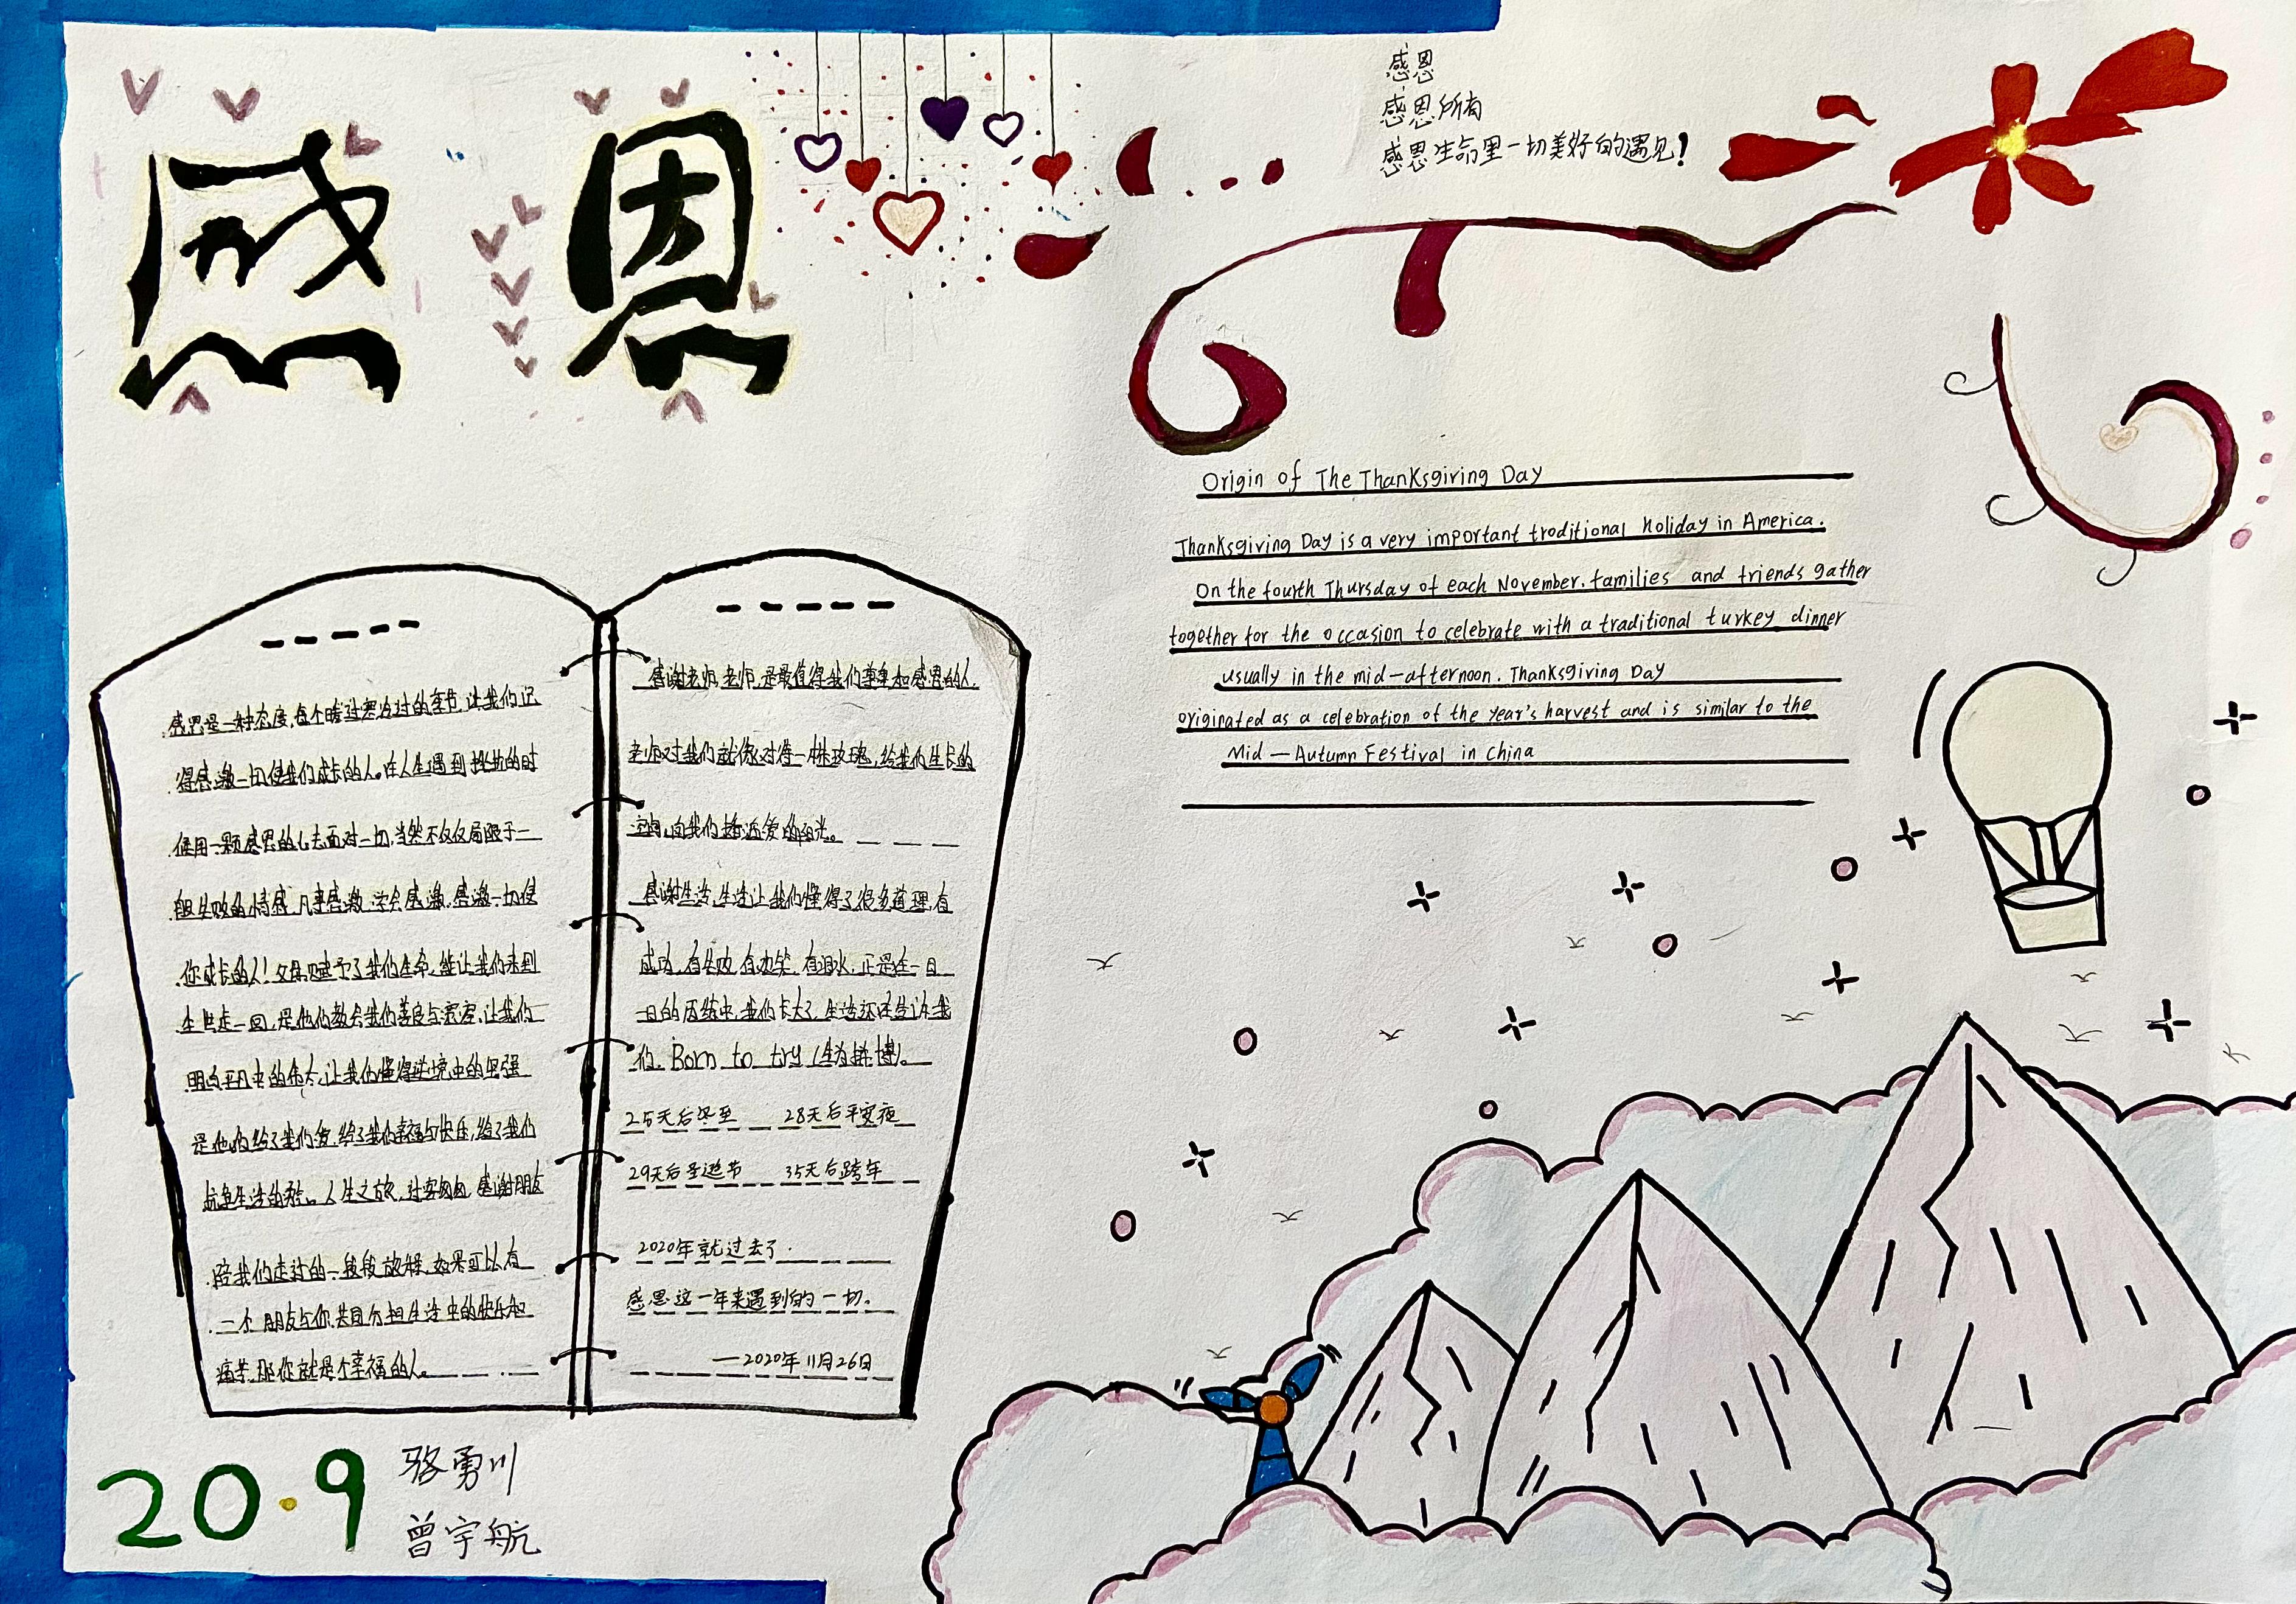 感恩
感恩
感恩所有
感恩生命里一切美好的遇见!
Origin of The Thanksgiving Day
Thanksgiving Day is a very important traditional holiday in America.
On the fourth Thursday of each November. families and friends gather
together for the occasion to celebrate with a traditional turkey dinner
usually in the mid-afternoon. Thanksgiving Day
originated as a celebration of the year's harvest and is similar to the
Mid-Autumn Festival in China
感恩是一种态度,每个暖过寒冷过的季节,让我们记
得感激一切使我们成长的人。在人生遇到挫折的时
候用一颗感恩的心去面对一切,当然不仅仅局限于一
般失败的情感,凡事感激,学会感激,感激一切使
你成长的人!父母赋予了我们生命,能让我们来到
生世走一回,是他们教会我们善良与宽容,让我们
明白平凡中的伟大,让我们懂得逆境中的坚强
是他们给了我们爱,给了我们幸福与快乐,给了我们
抗争生活的 人生之旅,过客匆匆,感谢朋友
陪我们走过的一段段旅程,如果可以有
一个朋友与你共同分担生活中的快乐和
痛苦,那你就是个幸福的人。
感谢老师,老师,是最值得我们尊重和感恩的人,
老师对我们就像对待一株玫瑰,给我们生长的
空间,向我们播洒爱的阳光。
感谢生活,生活让我们懂得了很多道理,有
成功,有失败,有欢笑,有泪水,正是在一日
一日的历练中,我们长大了,生活还告诉我
们,Born to try(生为拼搏)。
25天后冬至 28天后平安夜
29天后圣诞节 35天后跨年
2020年就过去了.
感恩这一年来遇到的一切。
—2020年11月26日
20·9
骆勇川
曾宇航